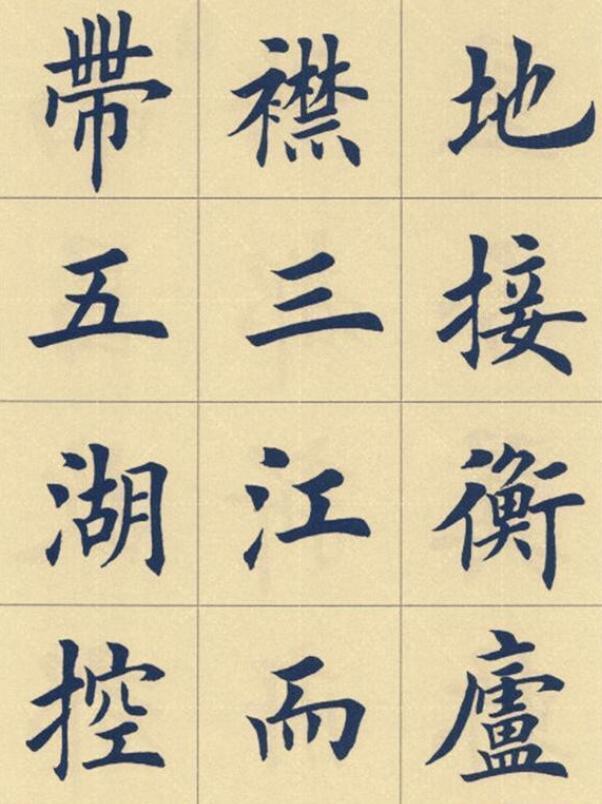 地接衡廬
襟三江而
帶五湖控